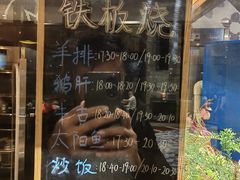 铁板烧
羊排:17:30-18:00/19:00-19:30
鹅肝:18:00-18:20/19:30-19:50
牛舌:18:20-18:40/19:50-20:10
太阳鱼:17:30-20:30
炒饭:18:40-19:00/20:10-20:30